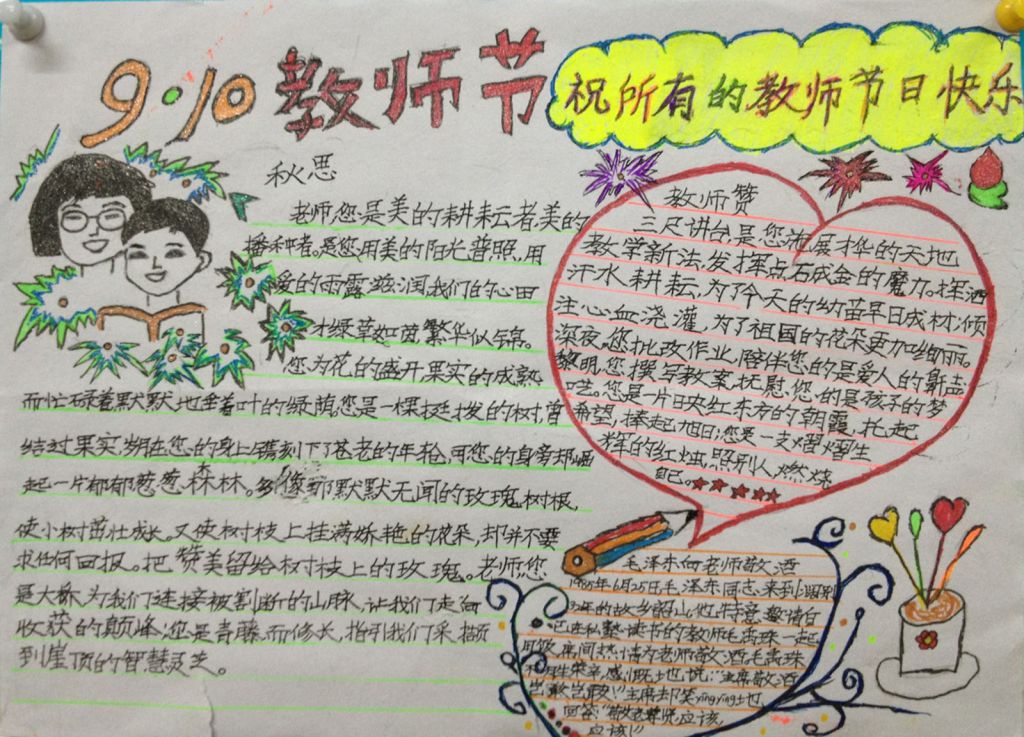 9·10教师节
祝所有的教师节日快乐
秋思
老师,您是美的耕耘者,美的
播种者。是您用美的阳光普照,用
爱的雨露滋润,我们的心田
才绿草如茵,繁华似锦。
您为花的盛开,果实的成熟
而忙碌着默默地垂着叶的绿荫,您是一棵挺拔的树,曾
结过果实,岁月在您的身上镌刻下了苍老的年轮,可您的身旁却崛
起一片郁郁葱葱森林。多像那默默无闻的玫瑰树根,
使小树茁壮成长。又使树枝上挂满娇艳的花朵,却并不要
求任何回报。把赞美留给树枝上的玫瑰。老师,您
是大桥,为我们连接被割断的山脉,让我们走向
收获的颠峰;您是青藤而修长,指引我们采撷
到崖顶的智慧灵芝。
教师赞
三尺讲台,是您施展才华的天地
教学新法,发挥点石成金的魔力。挥洒
汗水耕耘,为了今天的幼苗早日成材;倾
注心血浇灌,为了祖国的花朵更加绚丽。
深夜,您批改作业,陪伴您的是爱人的鼾声
黎明,您撰写教案,抚慰您的是孩子的梦
呓。您是一片映红东方的朝霞,托起
希望,捧起旭日;您是一支熠熠生
辉的红烛,照别人燃烧
自己。
毛泽东向老师敬酒
毛泽东同志,来到
的故乡韶山,他特意邀请自
己在私塾读书的教师毛禹珠一起
席间热情为老师敬酒,毛禹珠
感慨地说:“主席敬酒
岂敢岂敢!”主席却笑yingying地
回答:“敬老尊贤,应该,
应该!”